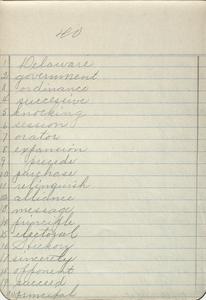 40
1 Delaware
2 government
3 ordinance
4 successive
5 knocking
6 session
7 orator
8 expansion
9 precede
10 purchase
11 relinquish
12 allience
13 message
14 principle
15 electoral
16 Hickory
17 sincerity
18 opponent
19 succeed
20 principal